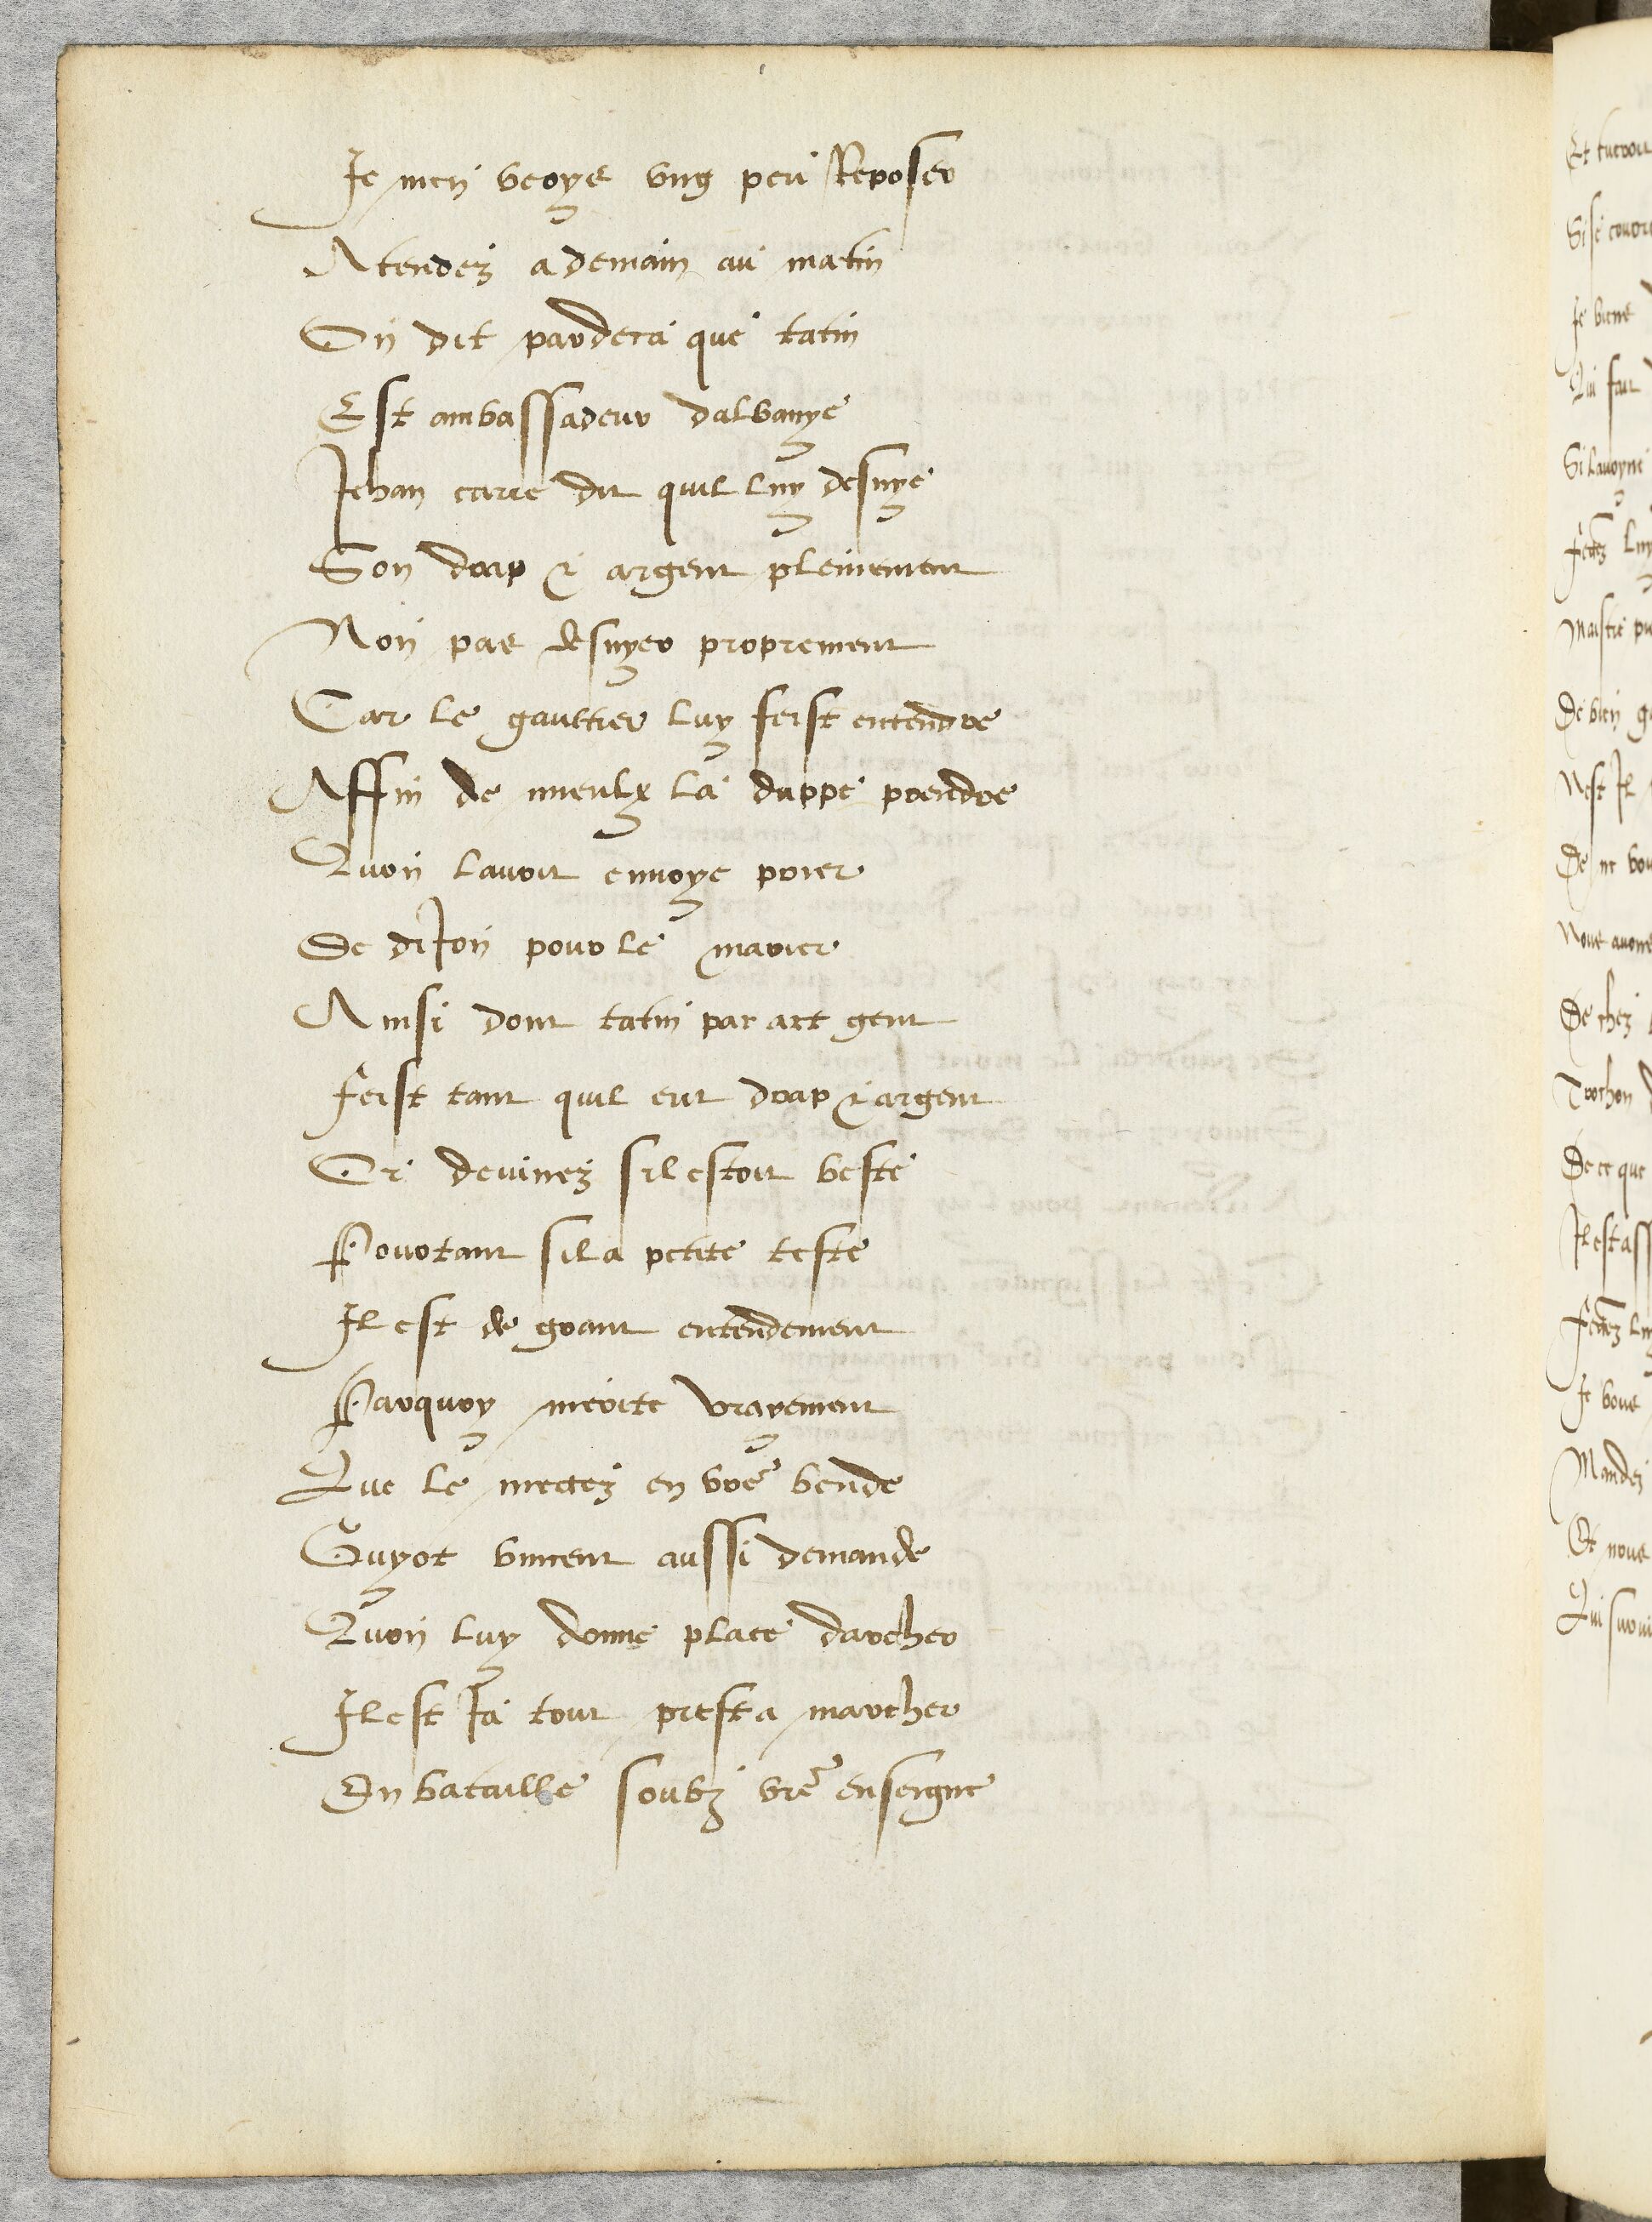 Je men veoys ung peu Reposer
Atendez a demain au matin
On dit par deca que tatin
Est ambassadeur dalbanye
Jehan carre dit quil luy desnye
Son drap & argent pleinement
Non pas desnyer proprement
Car le gaultier luy feist entendre
Affin de mieulx la duppe prendre
Quon lavoit envoye prier
De diJon pour le marier
Ainsi dont tatin par art gent
Feist tant quil eut drap & argent
Or devinez sil estoit beste
Pourtant sil a petite teste
Il est de grant entendement
Parquoy merite vrayement
Que le mectez en vre bende
Guyot vincent aussi demande
Quon luy donne place darcher
Il est Ja tout prest a marcher
En bataille soubz vre enseigne
Et
Si se
Je viens
Qui fait
Si lavoyne
luy
Maistre
De bien
Nest Il
De ne vou
Nous avons
De chez
De ce que
Il est ass
Je vous
Mandez
Et nous
Qui